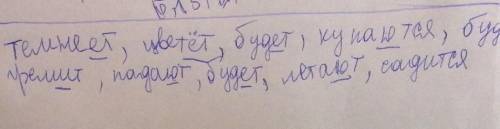 темнеет, цветёт, будет, купаются, буд
гремит, падают, будет, летают, садится